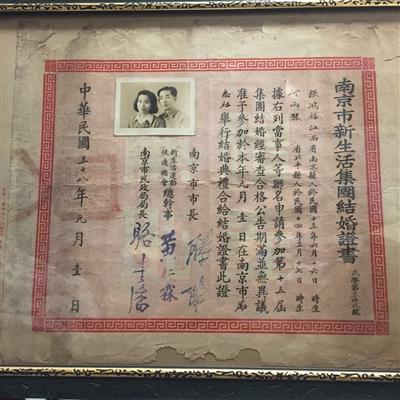 南京市新生活集團結婚證書
張鴻福江西省南京縣人於民國十三年六月十六日 時生
雨琴 省北平縣人於民國十四年三月十七日 時生
據右列當事人等聯名申請參加第十三屆
集團結婚經審查合格公告期滿並無異議
准予參加於本年元月壹日在南京市勵
志社舉行結婚典禮合給結婚證書此證
南京市市長 滕傑
新生活運動
促進總會總幹事 黃仁霖
南京市民政局局長 駱
中華民國三十八年元月壹日